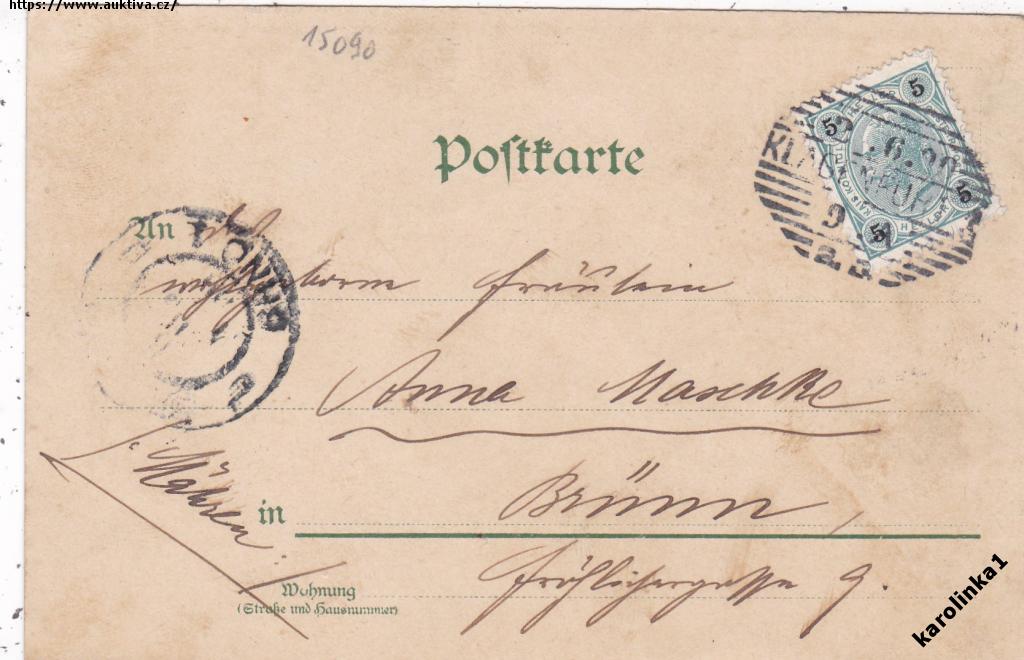 https://www.auktiva.cz/
15090
Postkarte
An
wohlgeborne Fräulein
Anna Maschke
Brünn,
Mähren
in
Fröhlichergasse 9.
Wohnung
(Straße und Hausnummer)
5
5
5
5
KLAGENFURT
karolinka1